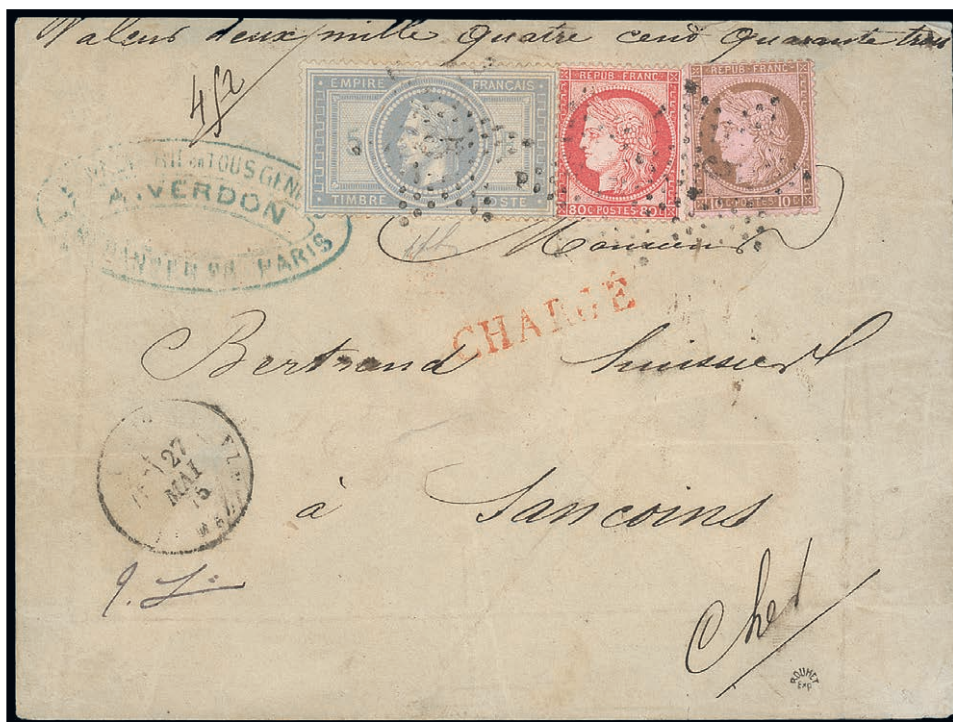 Valeur deux mille quatre cent quarante trois
EMPIRE FRANÇAIS
5
TIMBRE POSTE
REPUB. FRANC.
80 C. POSTES 80
REPUB. FRANC.
10 c
EN TOUS GEN
A. VERDON
PARIS
P
Monsieur
CHARGÉ
Bertrand huissier
27
MAI
75
à Sancoins
Cher
ROUMET
EXP